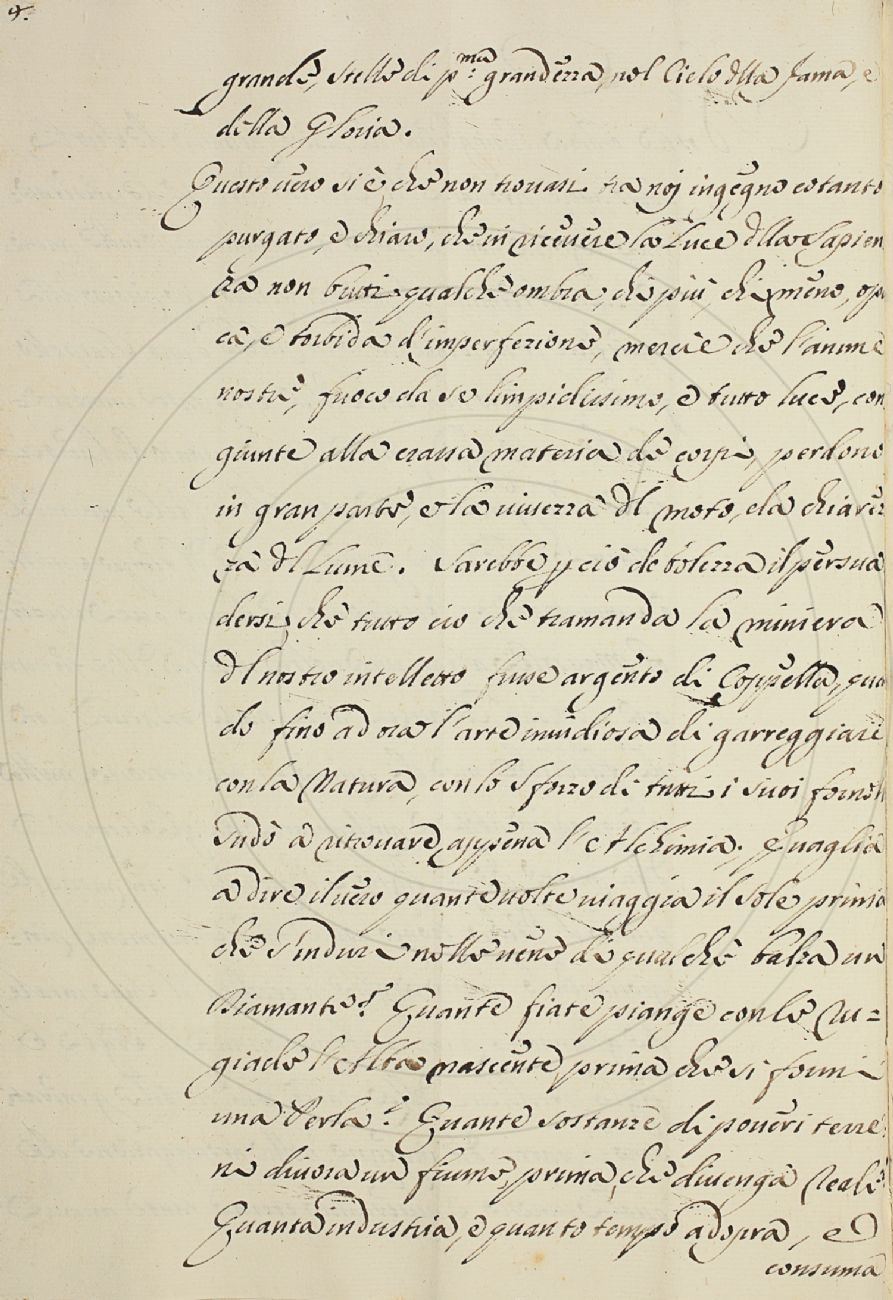 4.
grande, stelle di p.ma grandezza, nel Cielo dlla Fama, e
della Gloria.
Questo vero si è che non trovasi tra noj ingegno cotanto
purgato, e chiaro, che in ricevere la Luce dlla Sapien
za non butti qualche ombra, chi più, chi meno, opa
ca, e torbida d'imperfezione, mercè che l'anime
nostre, fuoco da se limpidissimo, e tutto luce, con
giunte alla crassa materia de corpi, perdono
in gran parte, e la vivezza dl moto, e la chiarez
za dl Lume. Sarebbe p ciò debolezza il persua
dersi, che tutto ciò che tramanda la miniera
dl nostro intelletto fusse argento di Coppella, qua
do fino ad ora l'arte invidiosa di garreggiare
con la Natura, con lo sforzo di tutti i suoi fornelli
sudò à ritrovare appena l'Alchimia. Quaglia
a dire il vero quante volte viaggia il Sole prima
che s'induri nelle vene di qualche balza un
Diamante? Quante fiate piange con le Ru=
giade l'Alba nascente prima che si formi
una Perla? Quante sostanze di poveri terre
ni divora un fiume, prima che divenga Reale
Quanta industria, e quanto tempo adopra, e
consuma